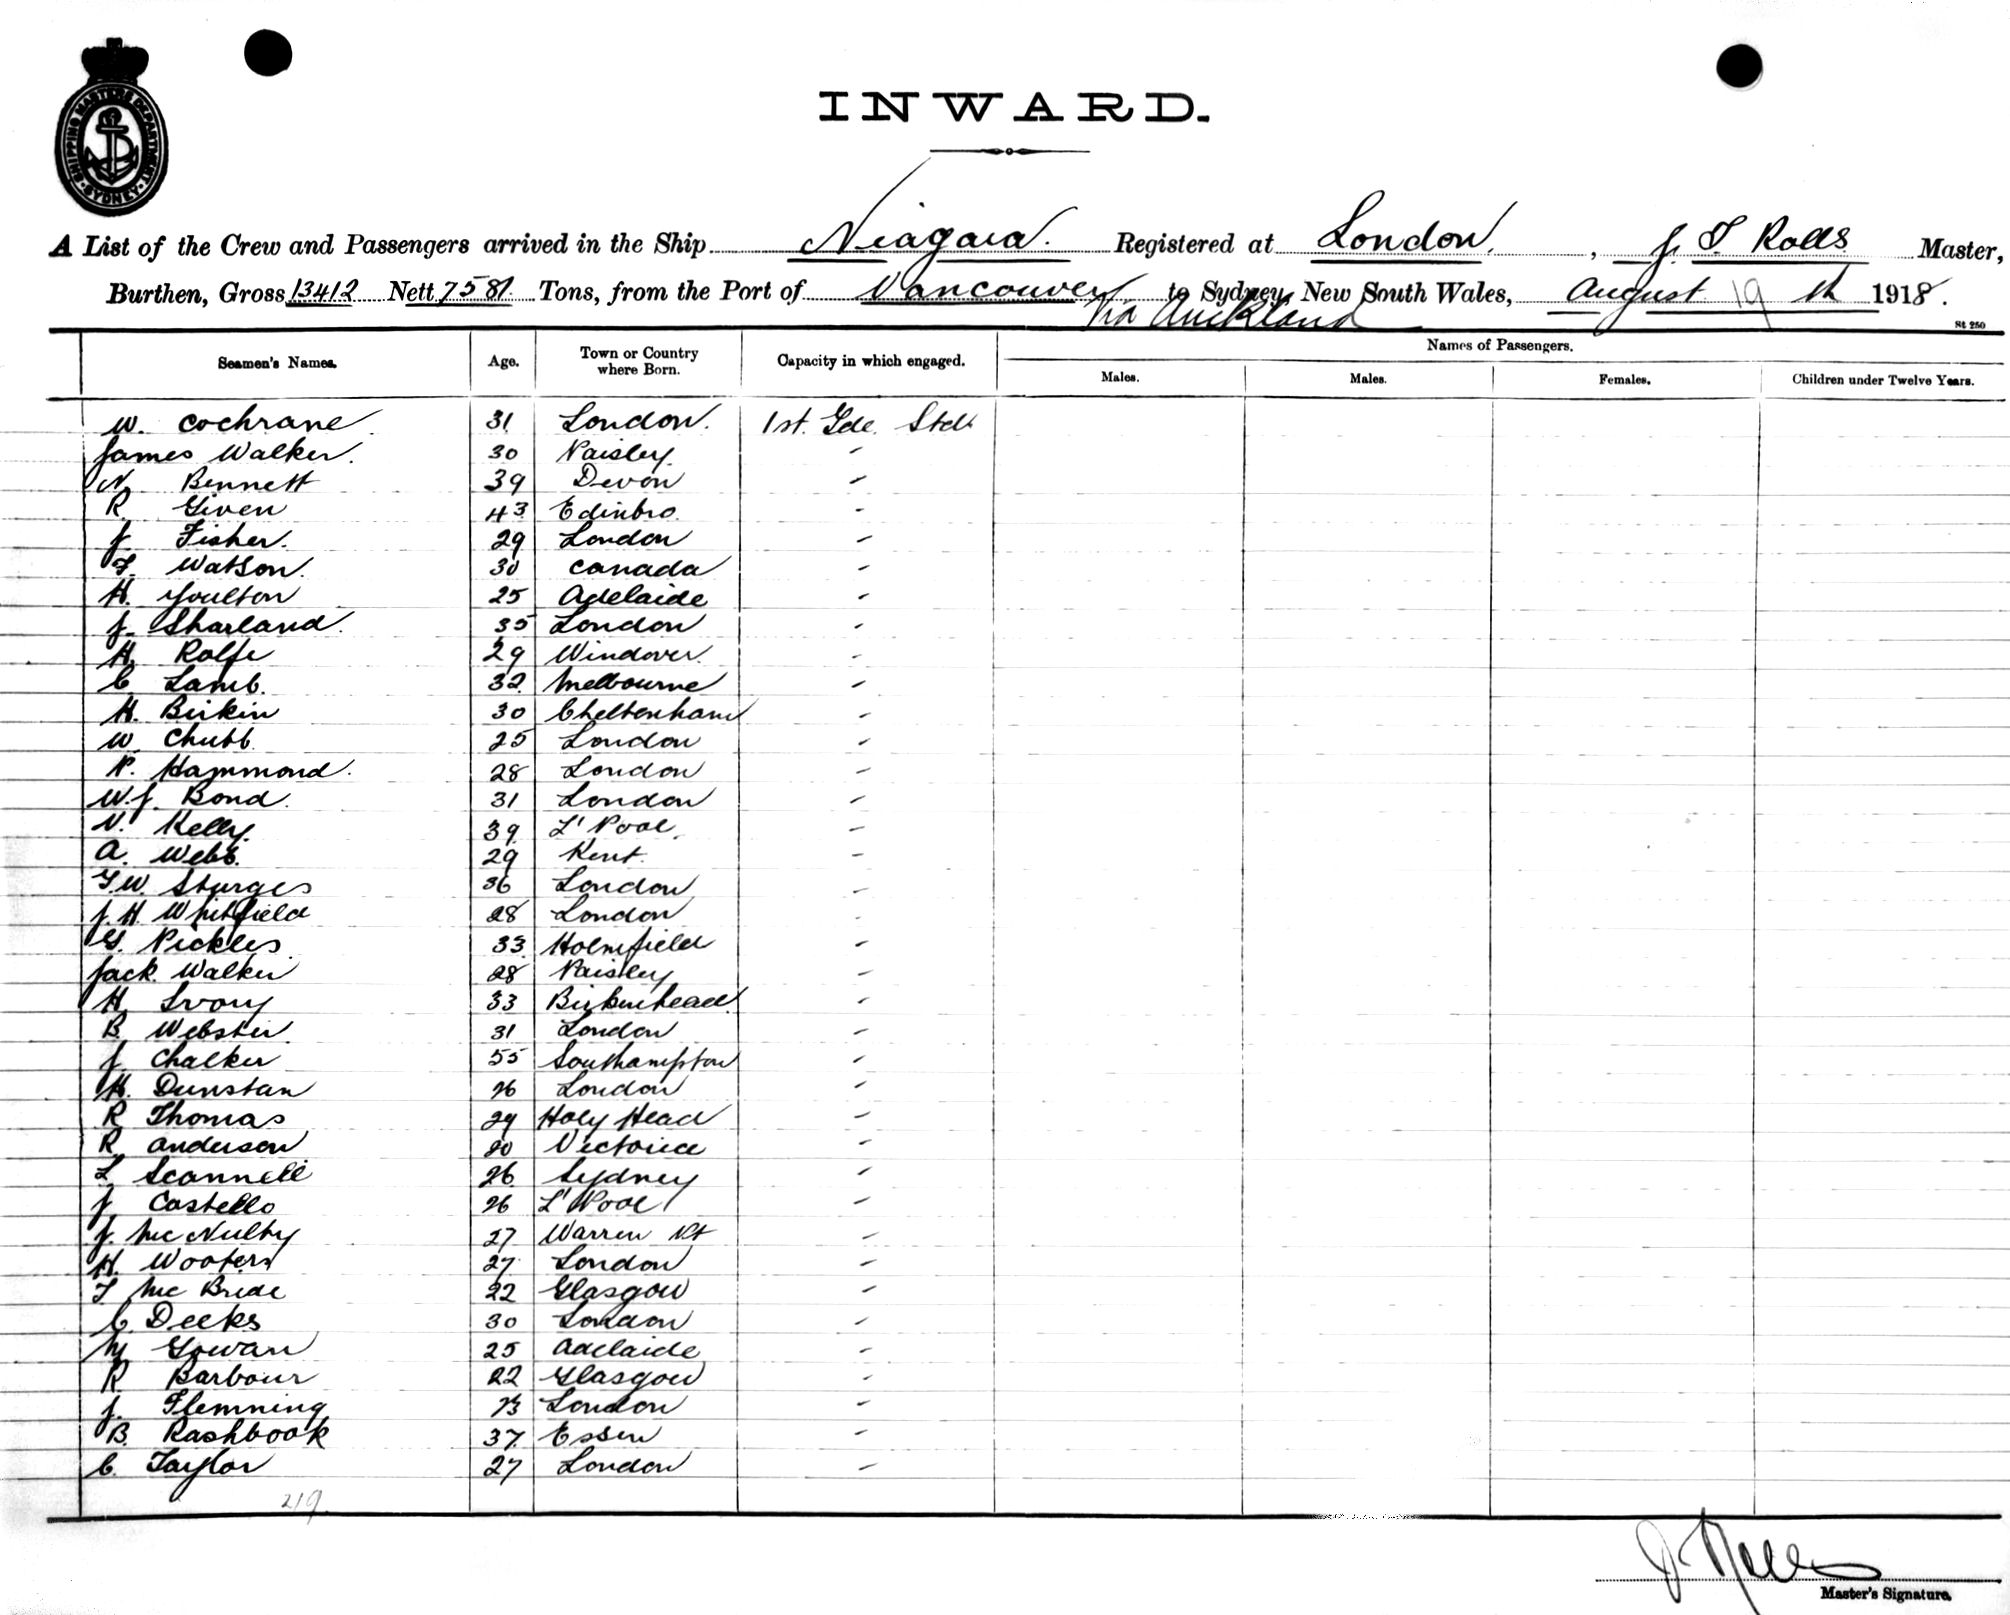 SHIPPING MASTERS DEPARTMENT
SYDNEY
INWARD.
A List of the Crew and Passengers arrived in the Ship Niagara. Registered at London, , J. T Rolls Master,
Burthen, Gross 13412 Nett 7581 Tons, from the Port of Vancouver to Sydney, New South Wales, August 19 th 1918.
Via Auckland
St 250
Seamen's Names. Age. Town or Country where Born. Capacity in which engaged. Names of Passengers.
Males. Males. Females. Children under Twelve Years.
W. Cochrane 31 London. 1st. Gde. Std
James Walker. 30 Paisley. "
N Bennett 39 Devon "
R Given 43 Edinbro. "
J Fisher. 29 London "
T. Watson. 30 Canada "
H. Youlton 25 Adelaide "
J. Sharland. 35 London "
H Rolfe 29 Windover. "
C Lamb. 32 Melbourne "
H. Birkin 30 Cheltenham "
W. Chubb 25 London "
P. Hammond. 28 London "
W. J. Bond. 31 London "
V. Kelly. 39 L'Pool. "
A. Webb. 29 Kent. "
G. W. Sturges 36 London "
J. H. Whitfield 28 London "
G. Pickles 33 Holmfield "
Jack Walker 28 Paisley "
H Ivory 33 Birkenhead. "
B. Webster. 31 London "
J Chalker 55 Southampton "
H. Dunstan 26 London "
R Thomas 29 Holy Head "
R. Anderson 20 Victoria "
L Scannell 26 Sydney "
J Costello 26 L'Pool "
J. McNulty 27 Warren Pt "
H. Wooters 27 London "
T McBride 22 Glasgow "
C. Deeks 30 London "
M Gowan 25 Adelaide "
R Barbour 22 Glasgow "
J. Flemning 23 London "
B. Rashbook 37 Essen "
C. Taylor 27 London "
219.
J Rolls
Master's Signature.